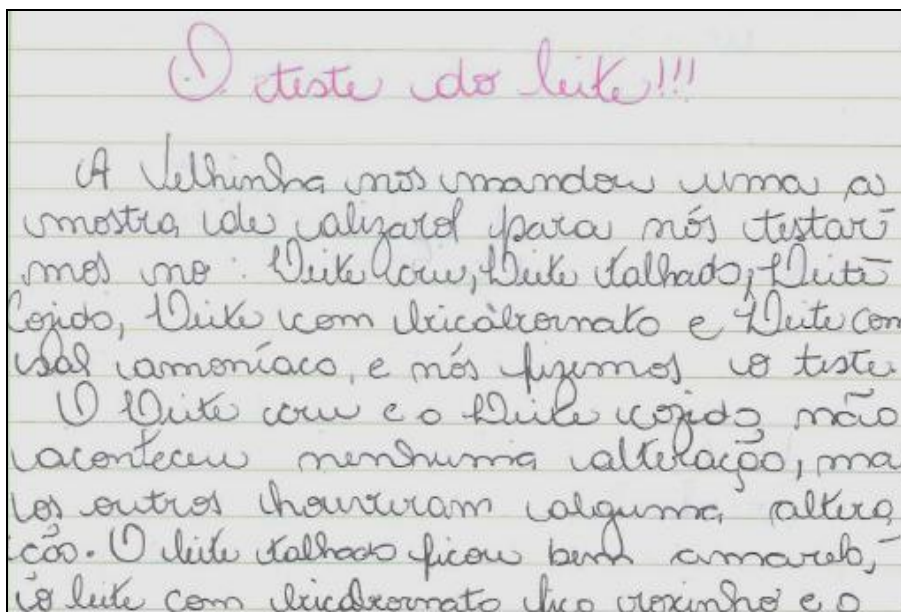 O teste do leite!!!
A Velhinha nos mandou uma a
mostra de alizarol para nós testar-
mos no: Leite cru, Leite talhado, Leite
Cozido, Leite com bicabornato e Leite com
sal amoníaco, e nós fizemos o teste.
O Leite cru e o Leite cozido não
aconteceu nenhuma alteração, ma
os outros houveram alguma altera
ção. O leite talhado ficou bem amarelo,
o leite com bicabornato fico roxinho e o